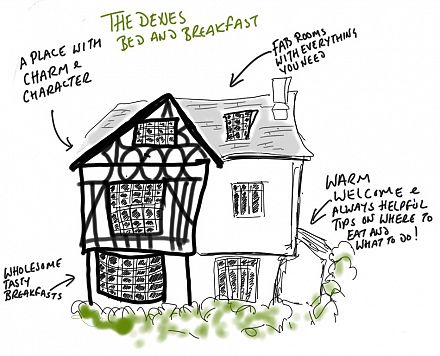 THE DEXIES
BED AND BREAKFAST
A PLACE WITH
CHARM &
CHARACTER
FAB ROOMS
WITH EVERYTHING
YOU NEED
WARM
WELCOME &
ALWAYS HELPFUL
TIPS ON WHERE TO
EAT AND
WHAT TO DO!
WHOLESOME
TASTY
BREAKFASTS